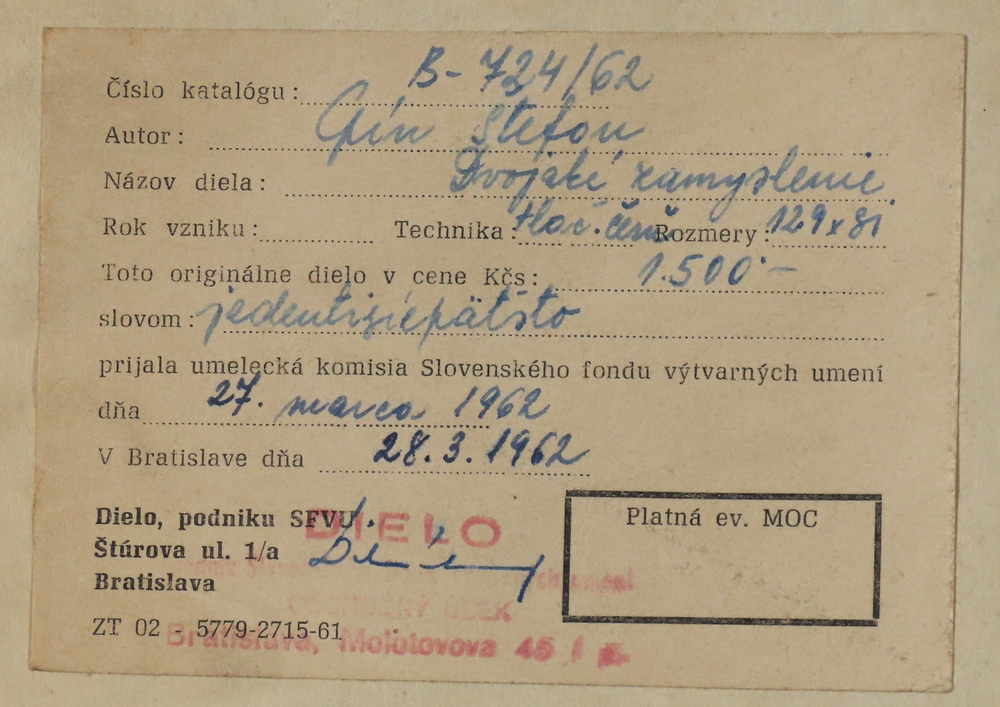 Číslo katalógu: B-724/62
Autor: Cpín Štefan
Názov diela: Dvojaké zamyslenie
Rok vzniku: Technika: tlač. čern Rozmery: 129x81
Toto originálne dielo v cene Kčs: 1.500.-
slovom: jedentisícpäťsto
prijala umelecká komisia Slovenského fondu výtvarných umení
dňa 27. marca 1962
V Bratislave dňa 28.3.1962
Dielo, podniku SFVU
Štúrova ul. 1/a
Bratislava
ZT 02 - 5779-2715-61
Platná ev. MOC
DIELO
OBCHODNÝ ÚSEK
Bratislava, Molotovova 45